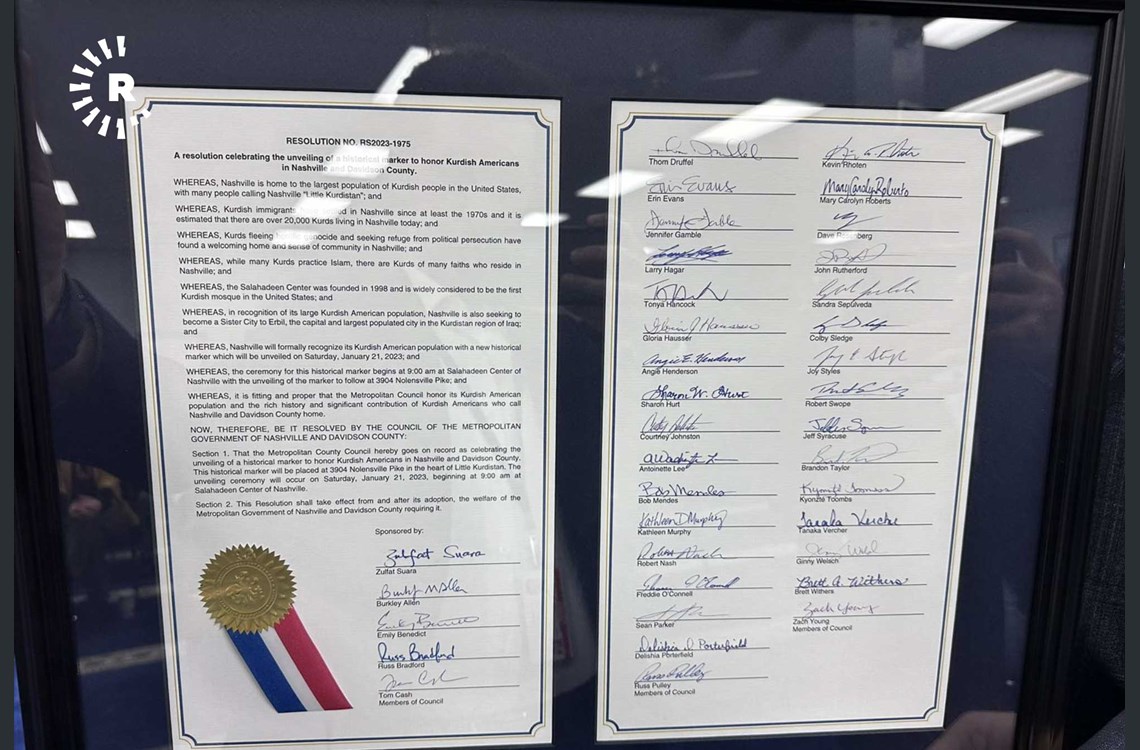 R
RESOLUTION NO. RS2023-1975
A resolution celebrating the unveiling of a historical marker to honor Kurdish Americans
in Nashville and Davidson County.
WHEREAS, Nashville is home to the largest population of Kurdish people in the United States,
with many people calling Nashville "Little Kurdistan"; and
WHEREAS, Kurdish immigrants in Nashville since at least the 1970s and it is
estimated that there are over 20,000 Kurds living in Nashville today; and
WHEREAS, Kurds fleeing genocide and seeking refuge from political persecution have
found a welcoming home and sense of community in Nashville; and
WHEREAS, while many Kurds practice Islam, there are Kurds of many faiths who reside in
Nashville; and
WHEREAS, the Salahadeen Center was founded in 1998 and is widely considered to be the first
Kurdish mosque in the United States; and
WHEREAS, in recognition of its large Kurdish American population, Nashville is also seeking to
become a Sister City to Erbil, the capital and largest populated city in the Kurdistan region of Iraq;
and
WHEREAS, Nashville will formally recognize its Kurdish American population with a new historical
marker which will be unveiled on Saturday, January 21, 2023; and
WHEREAS, the ceremony for this historical marker begins at 9:00 am at Salahadeen Center of
Nashville with the unveiling of the marker to follow at 3904 Nolensville Pike; and
WHEREAS, it is fitting and proper that the Metropolitan Council honor its Kurdish American
population and the rich history and significant contribution of Kurdish Americans who call
Nashville and Davidson County home.
NOW, THEREFORE, BE IT RESOLVED BY THE COUNCIL OF THE METROPOLITAN
GOVERNMENT OF NASHVILLE AND DAVIDSON COUNTY:
Section 1. That the Metropolitan County Council hereby goes on record as celebrating the
unveiling of a historical marker to honor Kurdish Americans in Nashville and Davidson County.
This historical marker will be placed at 3904 Nolensville Pike in the heart of Little Kurdistan. The
unveiling ceremony will occur on Saturday, January 21, 2023, beginning at 9:00 am at
Salahadeen Center of Nashville.
Section 2. This Resolution shall take effect from and after its adoption, the welfare of the
Metropolitan Government of Nashville and Davidson County requiring it.
Sponsored by:
Zulfat Suara
Zulfat Suara
Burkley Allen
Emily Benedict
Emily Benedict
Russ Bradford
Russ Bradford
Tom Cash
Members of Council
Thom Druffel
Thom Druffel
Erin Evans
Erin Evans
Jennifer Gamble
Larry Hagar
Tonya Hancock
Gloria Hausser
Angie E. Henderson
Angie Henderson
Sharon W. Hurt
Sharon Hurt
Courtney Johnston
Antoinette Lee
Bob Mendes
Bob Mendes
Kathleen D Murphy
Kathleen Murphy
Robert Nash
Robert Nash
Freddie O'Connell
Sean Parker
Delishia D Porterfield
Delishia Porterfield
Russ Pulley
Members of Council
Kevin Rhoten
Mary Carolyn Roberts
Mary Carolyn Roberts
Dave
John Rutherford
Sandra Sepulveda
Colby Sledge
Joy Styles
Robert Swope
Jeff Syracuse
Brandon Taylor
Kyonzte Toombs
Tanaka Vercher
Tanaka Vercher
Ginny Welsch
Brett A. Withers
Brett Withers
Zach Young
Zach Young
Members of Council